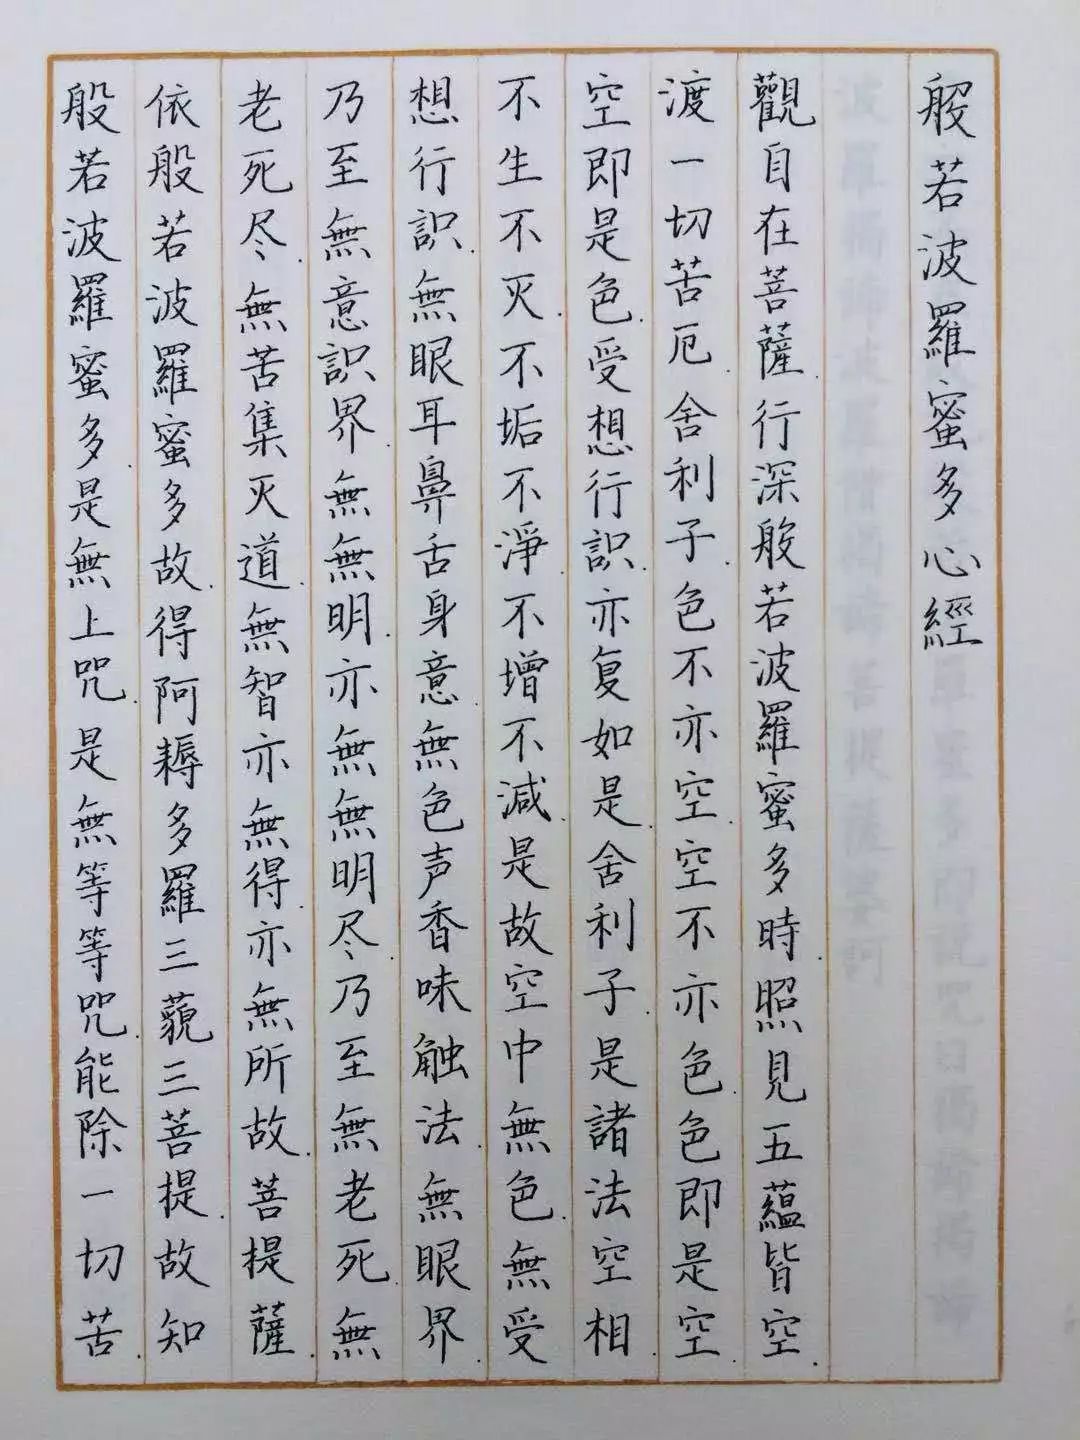 般若波羅蜜多心經
觀自在菩薩.行深般若波羅蜜多時.照見五蘊皆空.
渡一切苦厄.舍利子.色不亦空.空不亦色.色即是空.
空即是色.受想行識.亦复如是.舍利子是諸法空相.
不生不灭.不垢不淨.不增不減.是故空中無色.無受
想行識.無眼耳鼻舌身意.無色声香味触法.無眼界.
乃至無意識界.無無明.亦無無明尽.乃至無老死.無
老死尽.無苦集灭道.無智亦無得.亦無所故.菩提薩.
依般若波羅蜜多故.得阿耨多羅三藐三菩提.故知
般若波羅蜜多.是無上咒.是無等等咒.能除一切苦.